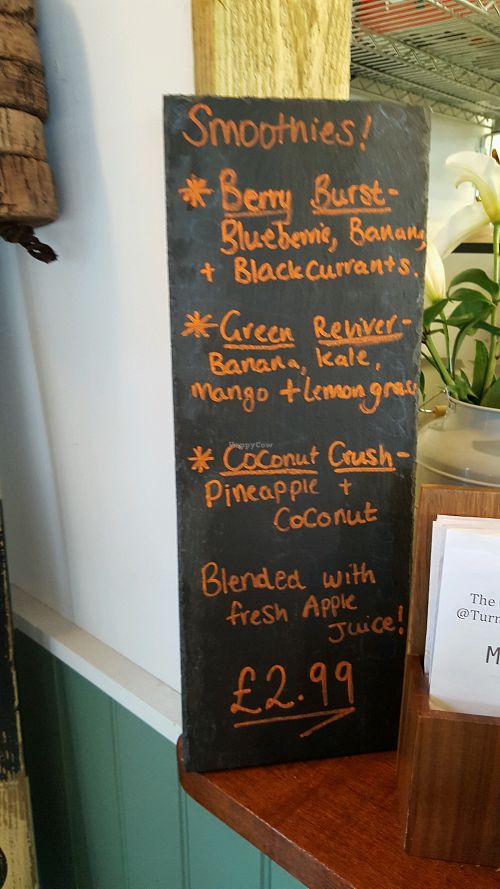 Smoothies!
* Berry Burst-
Blueberrie, Banana,
+ Blackcurrants.
* Green Reviver-
Banana, Kale,
mango + Lemongrass
* Coconut Crush-
Pineapple +
Coconut
Blended with
fresh Apple
Juice!
£2.99
HappyCow
The
@Turn
M